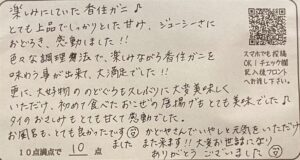 楽しみにしていた香住ガニ♪
とても上品でしっかりとした甘み、ジューシーさに
おどろき、感動しました!!
色々な調理方法で、楽しみながら香住ガニを
味わう事が出来て、大満足でした!!
更に、大好物ののどぐろもスしゃぶりに大変美味しく
いただけ、初めて食べたおこぜの唐揚げもとても美味でした♪
タイのおさしみもとても甘くて感動でした。
お風呂も、とても良かったです かどやさんでいやしと元気をいただけ
ました また来ます!! 大変お世話になり
ありがとうございました
10点満点で 10 点
スマホでも投稿
OK!チェック欄
記入後フロント
へお渡し下さい。